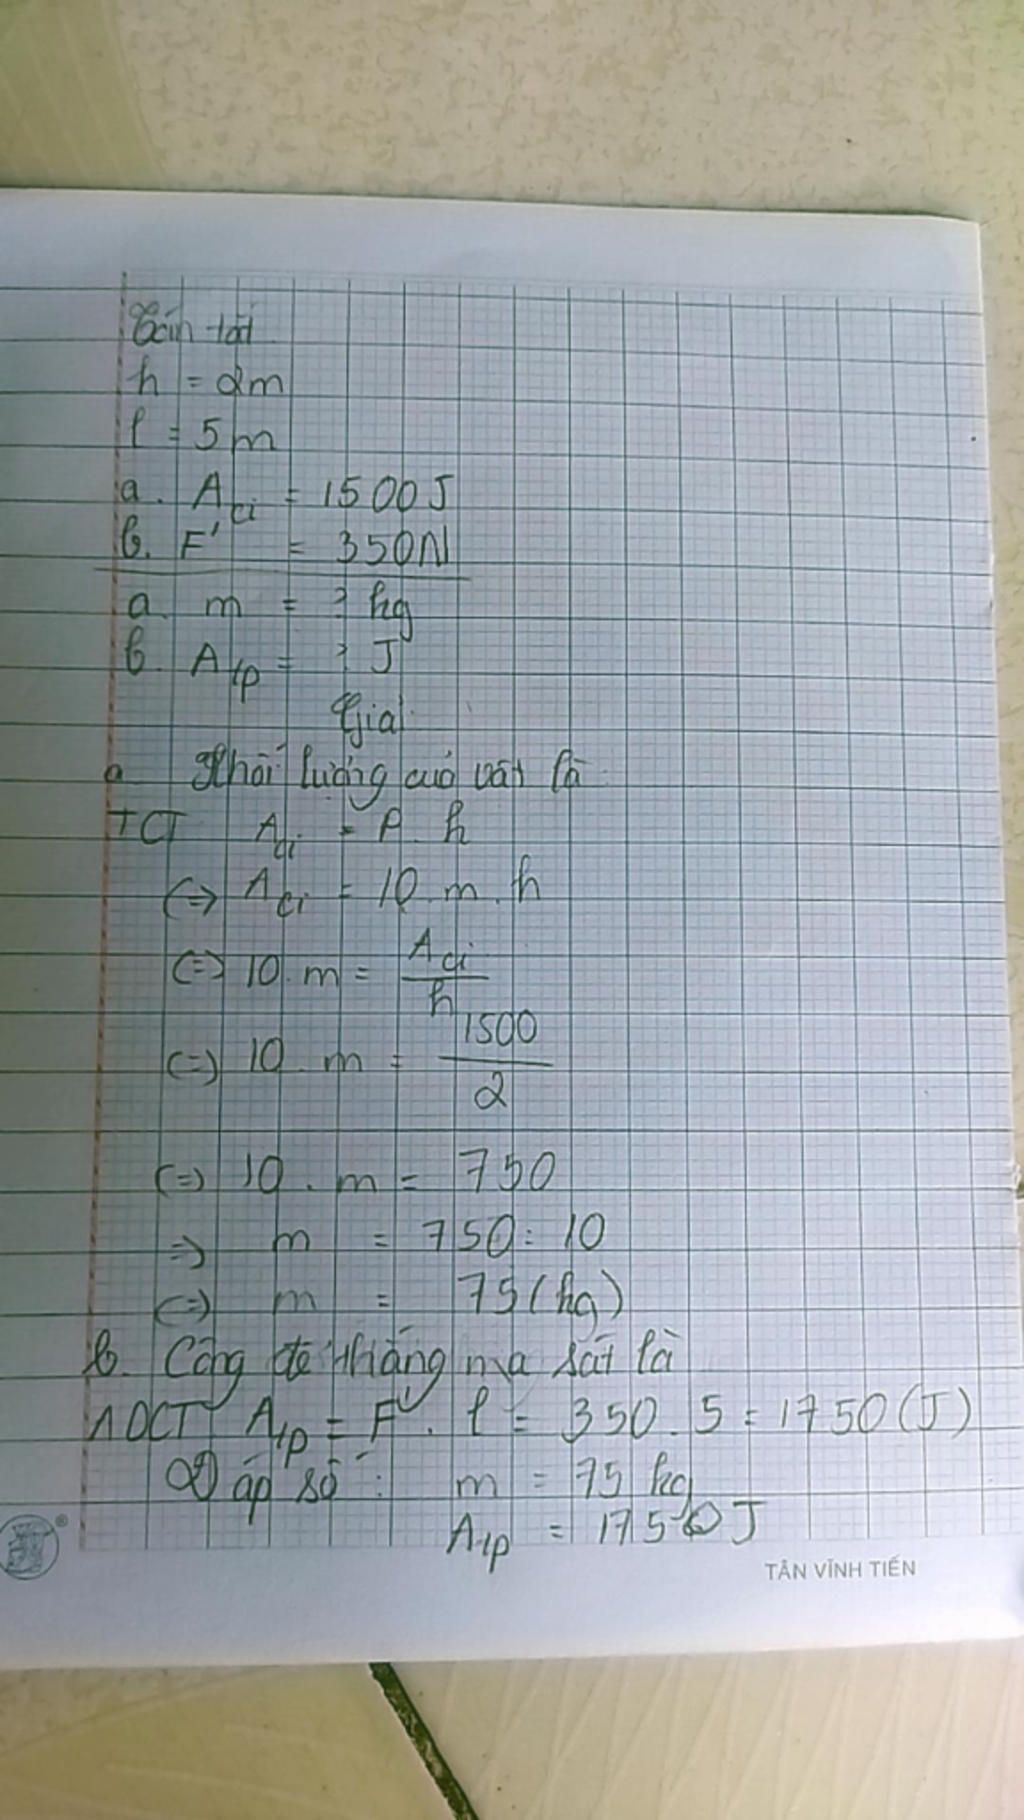 Tóm tắt
h = 2m
l = 5m
a. Aci = 1500J
b. F' = 350N
a. m = ? kg
b. Atp = ? J
Giải
a Khối lượng của vật là
TCT Aci = P. h
(=) Aci = 10. m. h
(=) 10. m = Aci / h
(=) 10. m = 1500 / 2
(=) 10. m = 750
=) m = 750: 10
(=) m = 75 (kg)
b. Công để thắng ma sát là
ADCT Atp = F'. l = 350. 5 = 1750 (J)
Đáp số: m = 75 kg
Atp = 1750 J
TÂN VĨNH TIẾN